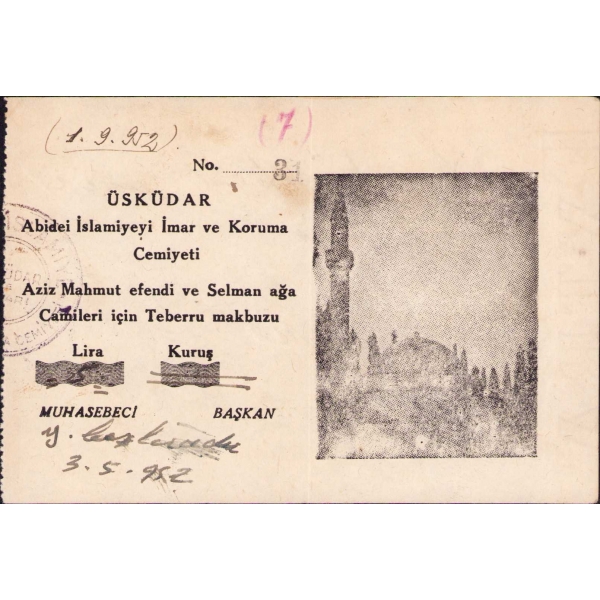 (1.9.952)
(7)
No. 31
ÜSKÜDAR
Abidei İslamiyeyi İmar ve Koruma
Cemiyeti
Aziz Mahmut efendi ve Selman ağa
Camileri için Teberru makbuzu
Lira Kuruş
5
MUHASEBECİ BAŞKAN
3.5.952